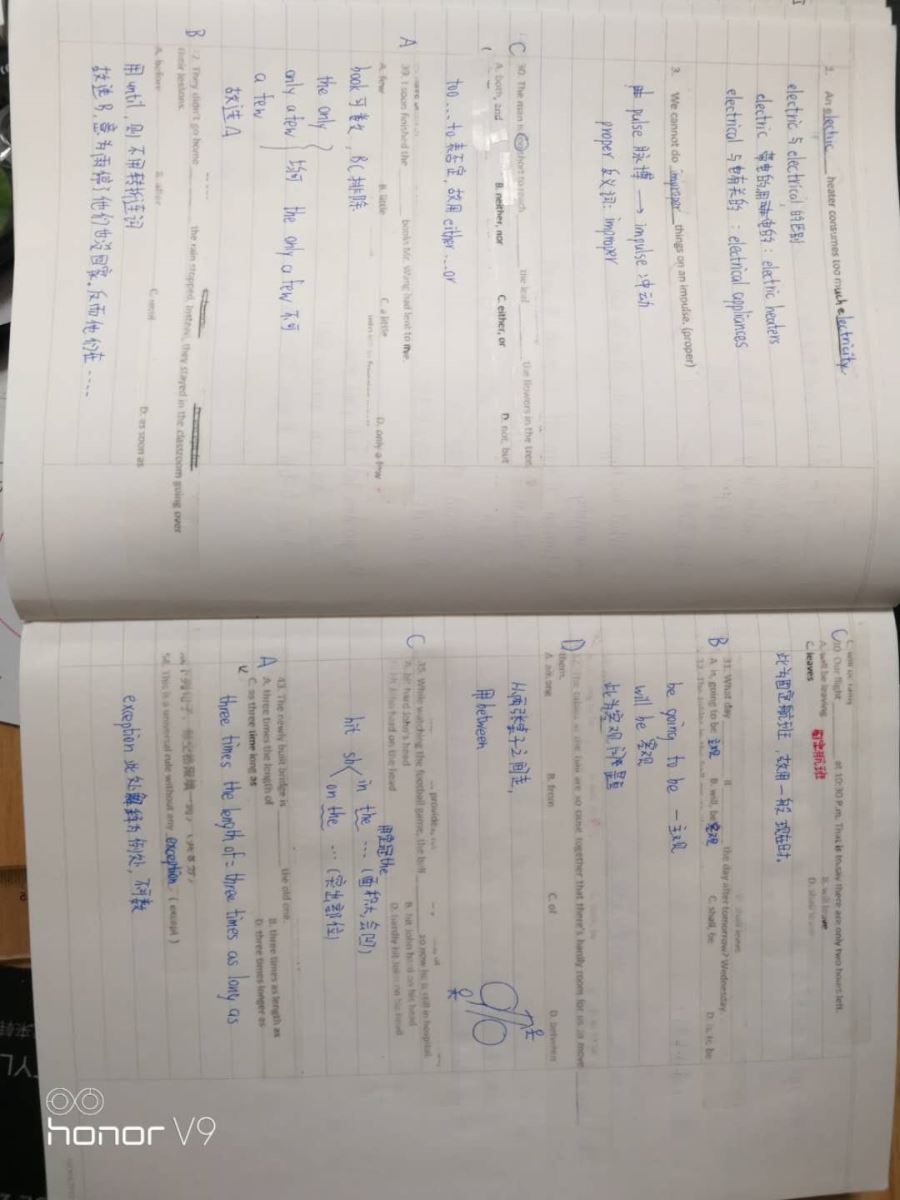 2. An electric heater consumes too much electricity
electric 与 electrical 的区别
electric 带电的用电的: electric heaters
electrical 与电有关的: electrical appliances
3. We cannot do improper things on an impulse. (proper)
pulse 脉搏 → impulse 冲动
proper 反义词: improper
C 30. The man is too short to reach the leaf the flowers in the tree.
A. both, and B. neither, nor C. either, or D. not, but
too ... to 表否定, 故用 either ... or
A 39. I soon finished the books Mr. Wang had lent to me.
A. few B. little C. a little D. only a few
book 可数, BC 排除
the only
only a few 均可 the only a few 不可
a few
故选A
B They didn't go home the rain stopped. Instead, they stayed in the classroom going over
their lessons.
A. before B. after C. until D. as soon as
用 until, 则不用转折连词
故选 B, 意为雨停了他们也没回家, 反而他们在 ....
C Our flight at 10:30 P.m. That is to say there are only two hours left.
A. will be leaving B. will leave
C. leaves
此为固定航班, 故用一般现在时.
B 31. What day it the day after tomorrow? Wednesday.
A. is, going to be 主观 B. will, be 客观 C. shall, be D. is, to be
be going to be — 主观
will be 客观
D The tables in the hall are so close together that there's hardly room for us to move
them.
B. from C. of D. between
从两张桌子之间走,
用 between
C 35. While watching the football game, the ball so now he is still in hospital.
A. hit hard John's head B. hit John hard on his head
D. hardly hit John on his head
用定冠 the
hit sb in the ... (面积大, 会凹)
on the ... (突出部位)
A 43. The newly built bridge is the old one.
A. three times the length of B. three times as length as
C. as three time long as D. three times longer as
three times the length of = three times as long as
This is a universal rule without any exception. (except)
exception 此处解释为例外, 不可数
honor V9